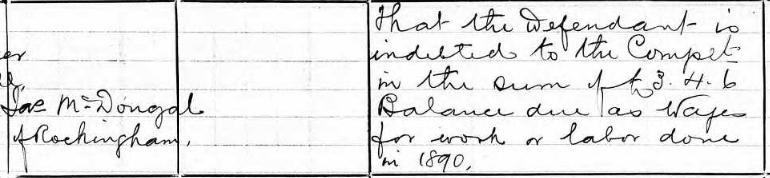 er
Jas McDougal
of Rockingham,
That the Defendant is
indebted to the Complt
in the sum of £3.4.6
Balance due as Wages
for work or labor done
in 1890.